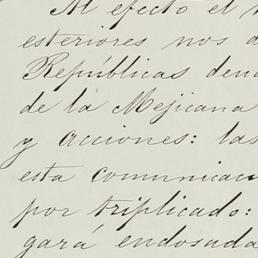 Al efecto el
esteriores nos
Repúblicas
de la Mejicana
y acciones: las
esta
por triplicado:
gará endosada